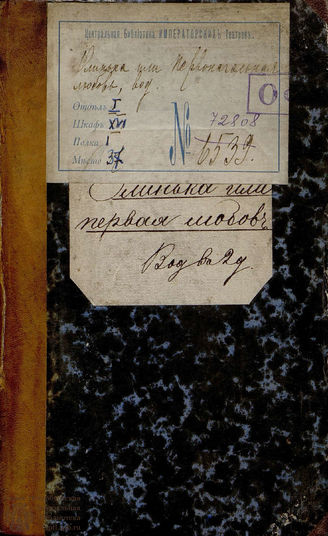 Центральная Библиотека ИМПЕРАТОРСКИХЪ Театровъ.
Олинька или Первоначальная
любовь, вод.
Отдѣлъ I
Шкафъ XVI
Полка 1
Мѣсто
№
72808
6539.
О
Олинька или
первая любовь
Вод въ 2д